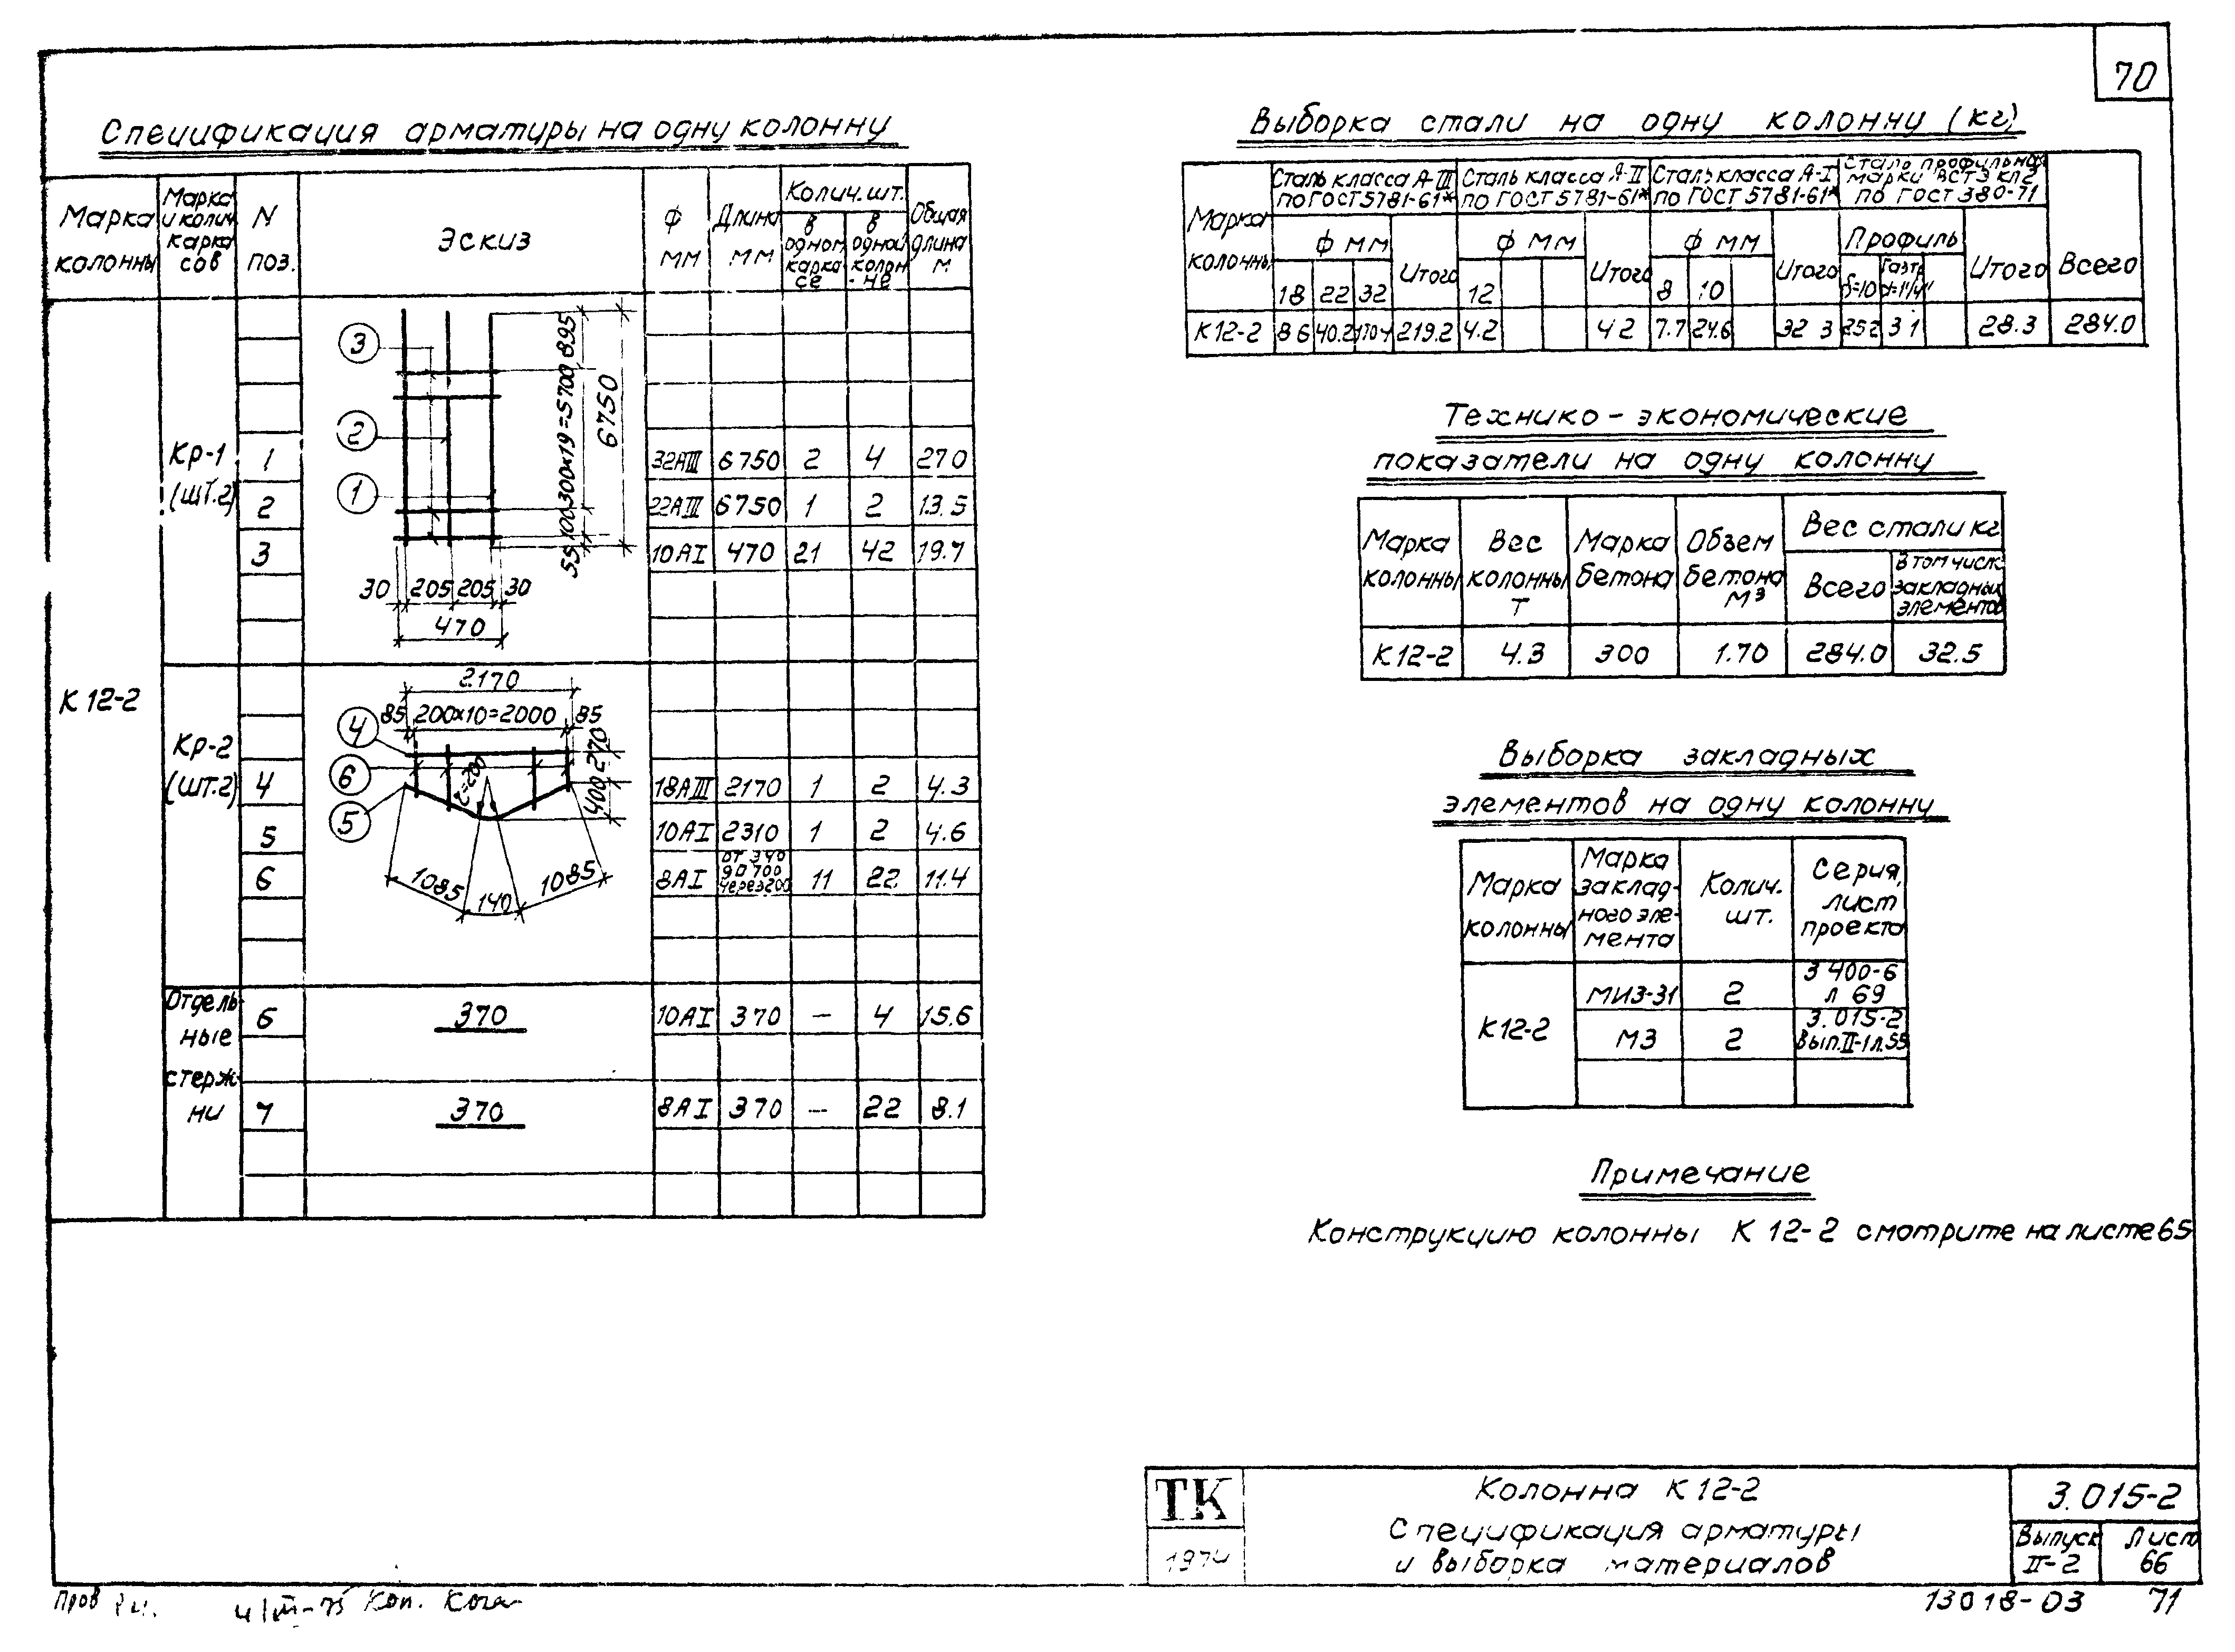 70
Спецификация арматуры на одну колонну
Марка колонны
Марка и колич. каркасов
N поз.
Эскиз
ф мм
Длина мм
Колич. шт.
в одном каркасе
в одной колонне
Общая длина м
К 12-2
Кр-1 (шт.2)
3
2
1
55 100 300х19=5700 895
6750
30 205 205 30
470
1 32АIII 6750 2 4 27.0
2 22АIII 6750 1 2 13.5
3 10АI 470 21 42 19.7
Кр-2 (шт.2)
2170
85 200х10=2000 85
4
6
5
270
400
r=200
1085 140 1085
4 18АIII 2170 1 2 4.3
5 10АI 2310 1 2 4.6
6 8АI от 340 до 700 через 200 11 22 11.4
Отдельные стержни
6 370 10АI 370 — 4 15.6
7 370 8АI 370 — 22 8.1
Выборка стали на одну колонну (кг)
Марка колонны
Сталь класса А-III по ГОСТ 5781-61*
Сталь класса А-II по ГОСТ 5781-61*
Сталь класса А-I по ГОСТ 5781-61*
Сталь профильная марки ВСТ3 кп2 по ГОСТ 380-71
ф мм Итого ф мм Итого ф мм Итого Профиль Итого Всего
18 22 32 12 8 10 δ=10 Газтр d=1"/4"
К12-2 8 6 40.2 170 4 219.2 4.2 4 2 7.7 24.6 32 3 25 2 3 1 28.3 284.0
Технико-экономические
показатели на одну колонну
Марка колонны
Вес колонны Т
Марка бетона
Объем бетона м³
Вес стали кг
Всего
В том числе закладных элементов
К12-2 4.3 300 1.70 284.0 32.5
Выборка закладных
элементов на одну колонну
Марка колонны
Марка закладного элемента
Колич. шт.
Серия, лист проекта
К12-2
МИ3-31 2 3 400-6 л 69
М3 2 3.015-2 Вып.II-1 л.55
Примечание
Конструкцию колонны К 12-2 смотрите на листе 65
ТК
1974
Колонна К 12-2
Спецификация арматуры
и выборка материалов
3.015-2
Выпуск II-2
Лист 66
Пров
Коп.
13018-03 71